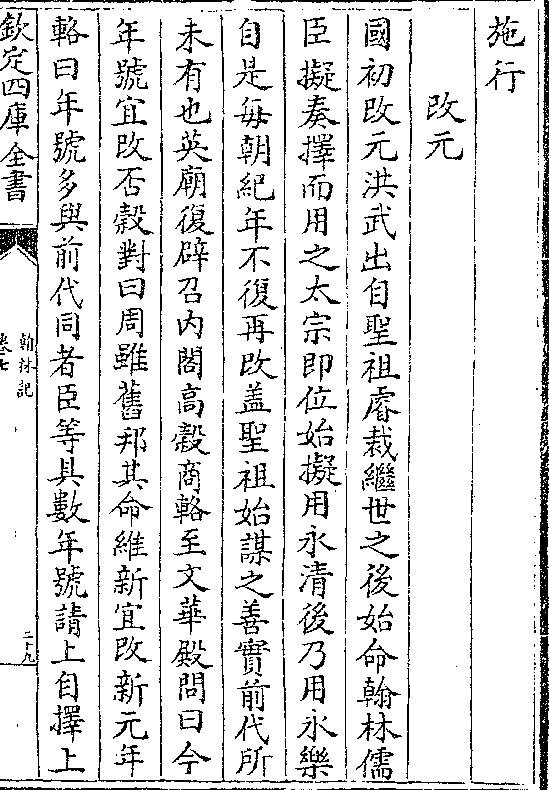 施行
改元
國初改元洪武出自聖祖睿裁繼世之後始命翰林儒
臣擬奏擇而用之太宗即位始擬用永清後乃用永樂
自是每朝紀年不復再改盖聖祖始謀之善實前代所
未有也英廟復辟召内閣高縠商輅至文華殿問曰今
年號宜改否縠對曰周雖舊邦其命維新宜改新元年
輅曰年號多與前代同者臣等具數年號請上自擇上
欽定四庫全書
翰林記
卷七
二十九